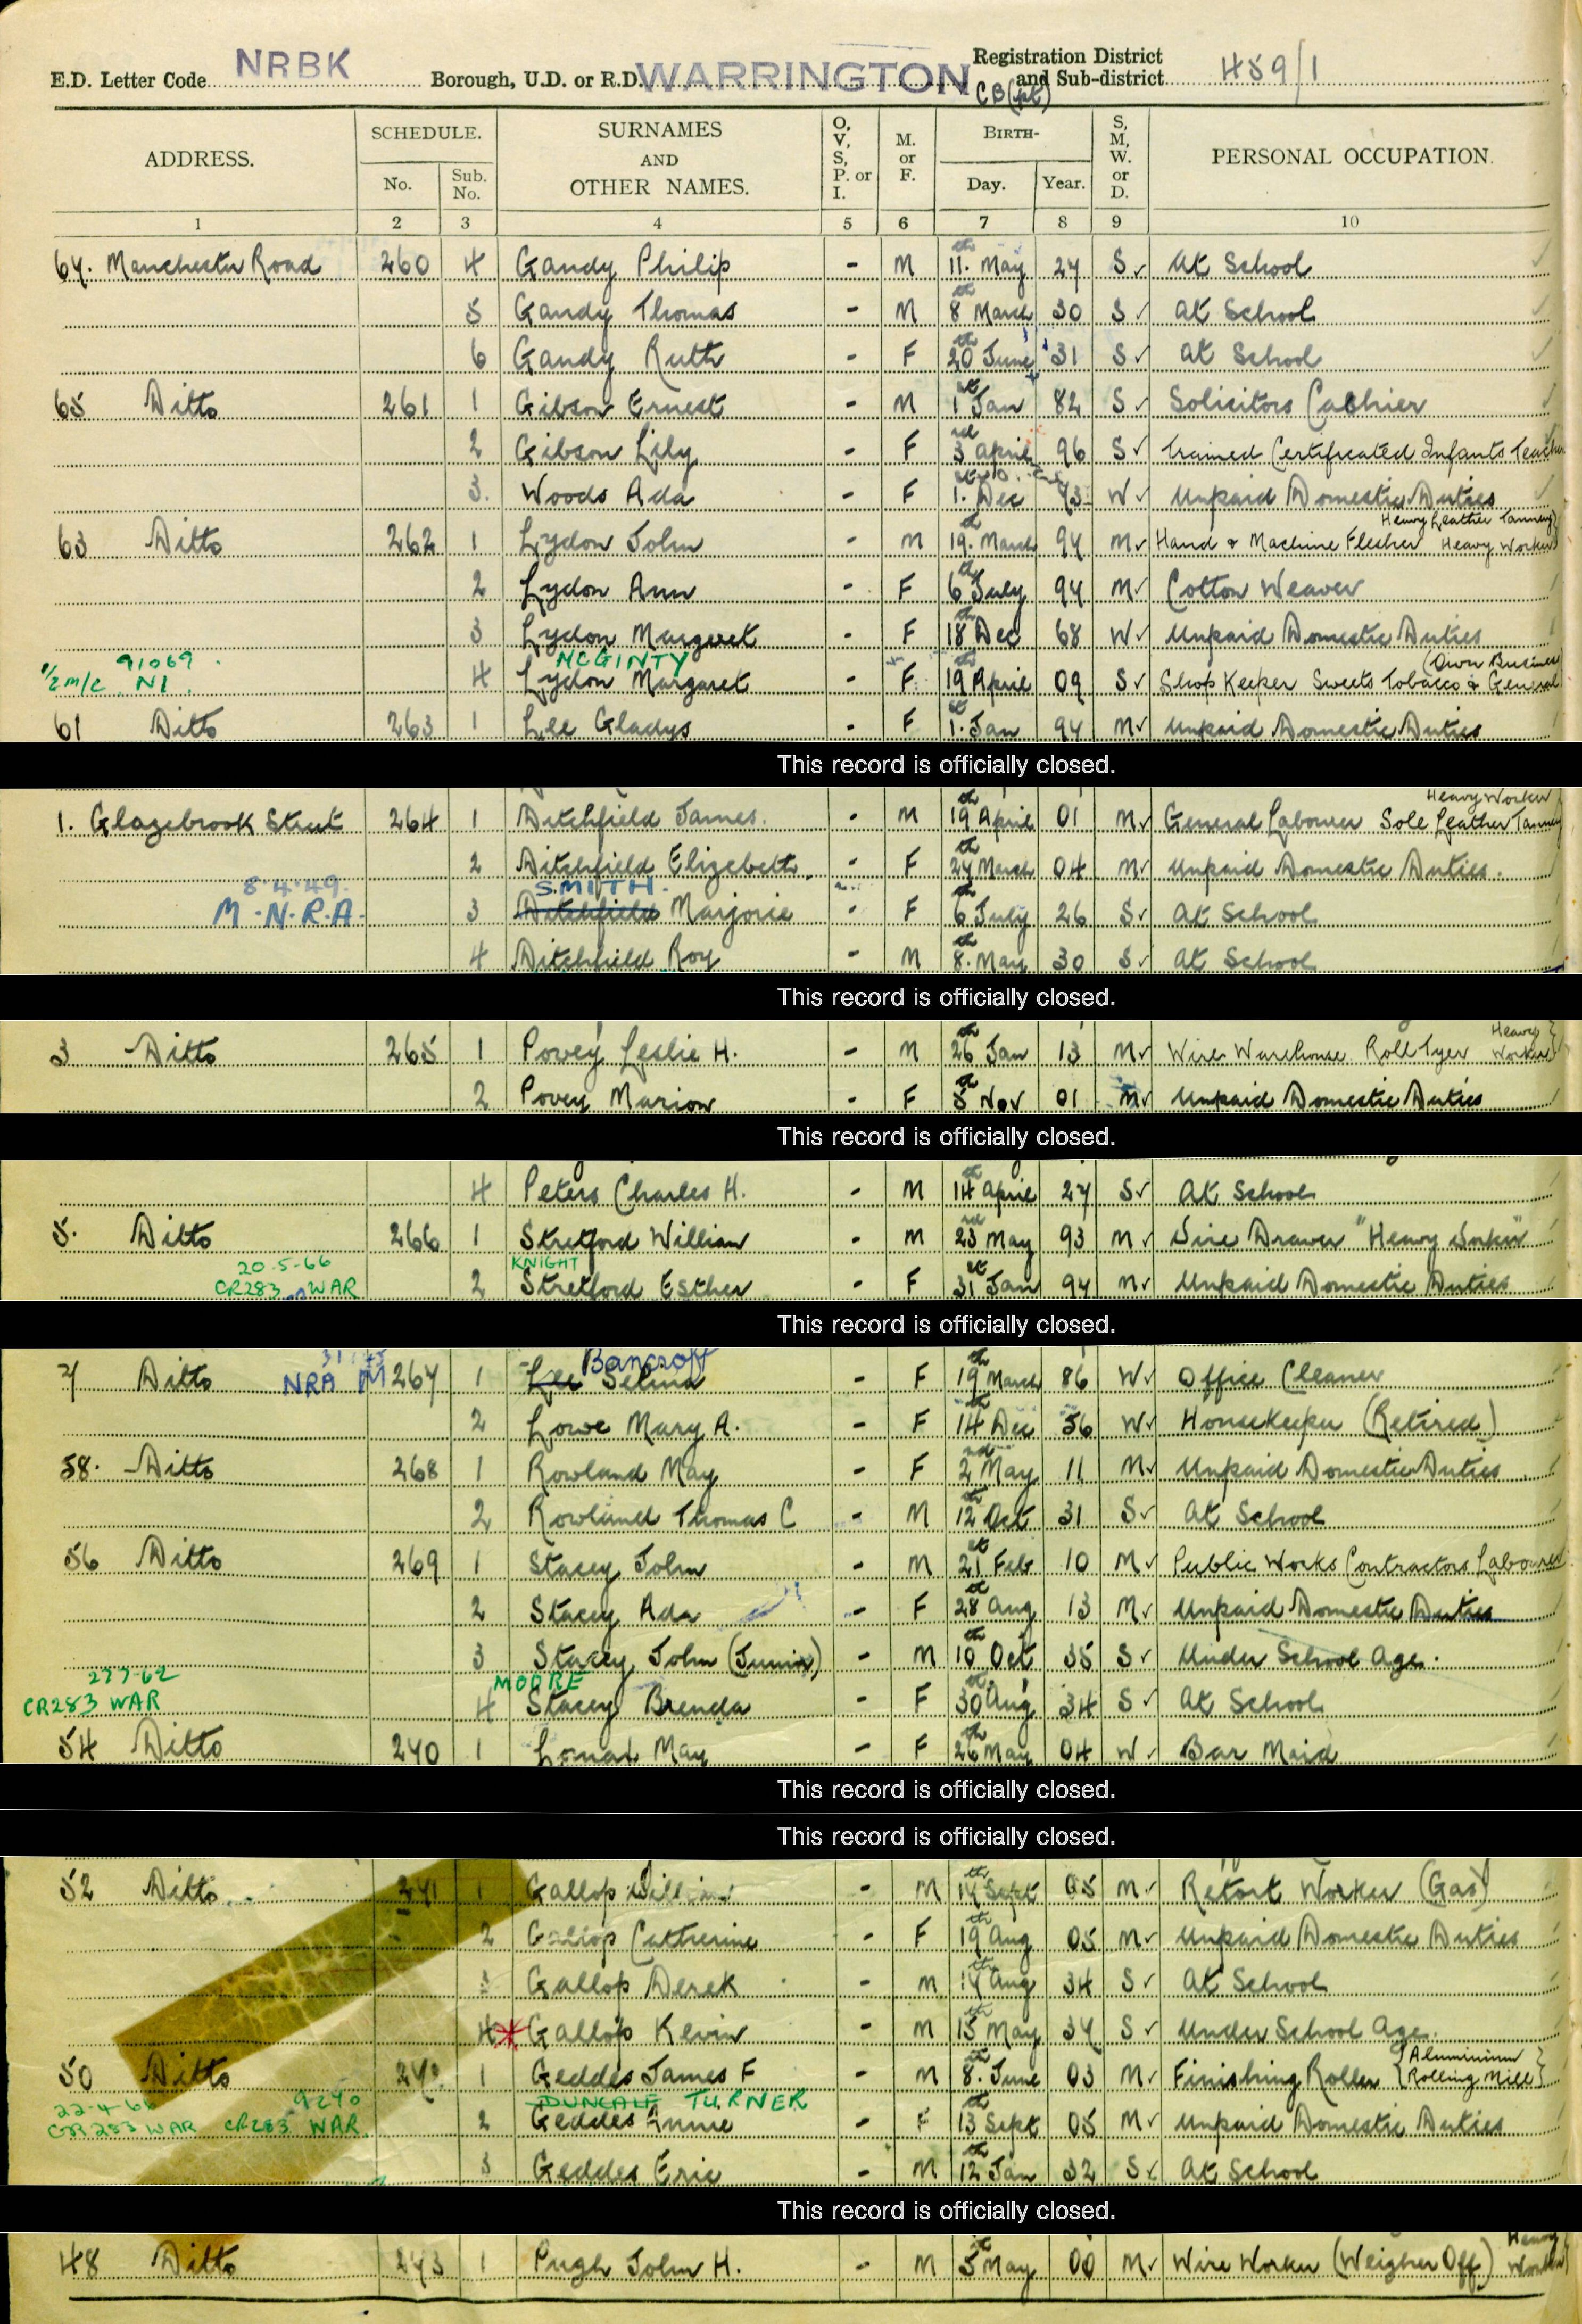 E.D. Letter Code NRBK Borough, U.D. or R.D. WARRINGTON CB (pt) Registration District and Sub-district 459/1
ADDRESS. SCHEDULE. No. Sub. No. SURNAMES AND OTHER NAMES. O, V, S, P. or I. M. or F. BIRTH- Day. Year. S, M, W. or D. PERSONAL OCCUPATION.
1 2 3 4 5 6 7 8 9 10
64. Manchester Road 260 4 Gandy Philip - M 11th May 27 S At School
5 Gandy Thomas - M 8th March 30 S At School
6 Gandy Ruth - F 20th June 31 S At School
65 Ditto 261 1 Gibson Ernest - M 1st Jan 82 S Solicitors Cashier
2 Gibson Lily - F 3rd April 96 S Trained Certificated Infants Teacher
3. Woods Ada - F 1. Dec 93 W Unpaid Domestic Duties
63 Ditto 262 1 Lydon John - M 19th March 94 M Hand & Machine Flesher Heavy Leather Tannery Heavy Worker
2 Lydon Ann - F 6th July 94 M Cotton Weaver
3 Lydon Margaret - F 18th Dec 68 W Unpaid Domestic Duties
91069 MCGINTY
1/2 m/c NI 4 Lydon Margaret - F 19th April 09 S Shop Keeper Sweets Tobacco & General (Own Business)
61 Ditto 263 1 Lee Gladys - F 1st Jan 94 M Unpaid Domestic Duties
This record is officially closed.
1. Glazebrook Street 264 1 Ditchfield James. - M 19th April 01 M General Labourer Sole Leather Tannery Heavy Worker
2 Ditchfield Elizabeth - F 27th March 04 M Unpaid Domestic Duties.
8.4.49. SMITH.
M.N.R.A. 3 Ditchfield Marjorie - F 6th July 26 S At School
4 Ditchfield Roy - M 8th May 30 S At School
This record is officially closed.
3 Ditto 265 1 Povey Leslie H. - M 26th Jan 13 M Wire Warehouse Roll Tyer Heavy Worker
2 Povey Marion - F 5th Nov 01 M Unpaid Domestic Duties
This record is officially closed.
4 Peters Charles H. - M 14th April 27 S At School
5. Ditto 266 1 Stretford William - M 23rd May 93 M Wire Drawer "Heavy Worker"
20-5-66 KNIGHT
CR283 WAR 2 Stretford Esther - F 31st Jan 94 M Unpaid Domestic Duties
This record is officially closed.
Bancroft
7 Ditto NRA M 267 1 Lee Selina - F 19th March 86 W Office Cleaner
2 Lowe Mary A. - F 14th Dec 56 W Housekeeper (Retired)
58. Ditto 268 1 Rowland May - F 2nd May 11 M Unpaid Domestic Duties
2 Rowland Thomas C - M 12th Oct 31 S At School
56 Ditto 269 1 Stacey John - M 21st Feb 10 M Public Works Contractors Labourer
2 Stacey Ada - F 28th Aug 13 M Unpaid Domestic Duties
3 Stacey John (Junior) - M 10th Oct 35 S Under School Age.
27-7-62 MOORE
CR283 WAR 4 Stacey Brenda - F 30th Aug 34 S At School
54 Ditto 270 1 Lomax May - F 26th May 04 W Bar Maid
This record is officially closed.
This record is officially closed.
52 Ditto 271 1 Gallop William - M 17th Sept 05 M Retort Worker (Gas)
2 Gallop Catherine - F 19th Aug 05 M Unpaid Domestic Duties
3 Gallop Derek - M 17th Aug 34 S At School
4 Gallop Kevin - M 15th May 37 S Under School Age.
50 Ditto 272 1 Geddes James F - M 8th June 03 M Finishing Roller {Aluminium Rolling Mill}
22-4-66 9270 DUNCALF TURNER
CR283 WAR CR283 WAR 2 Geddes Annie - F 13th Sept 05 M Unpaid Domestic Duties
3 Geddes Eric - M 12th Jan 32 S At School
This record is officially closed.
48 Ditto 273 1 Pugh John H. - M 5th May 00 M Wire Worker (Weigher Off) Heavy Worker